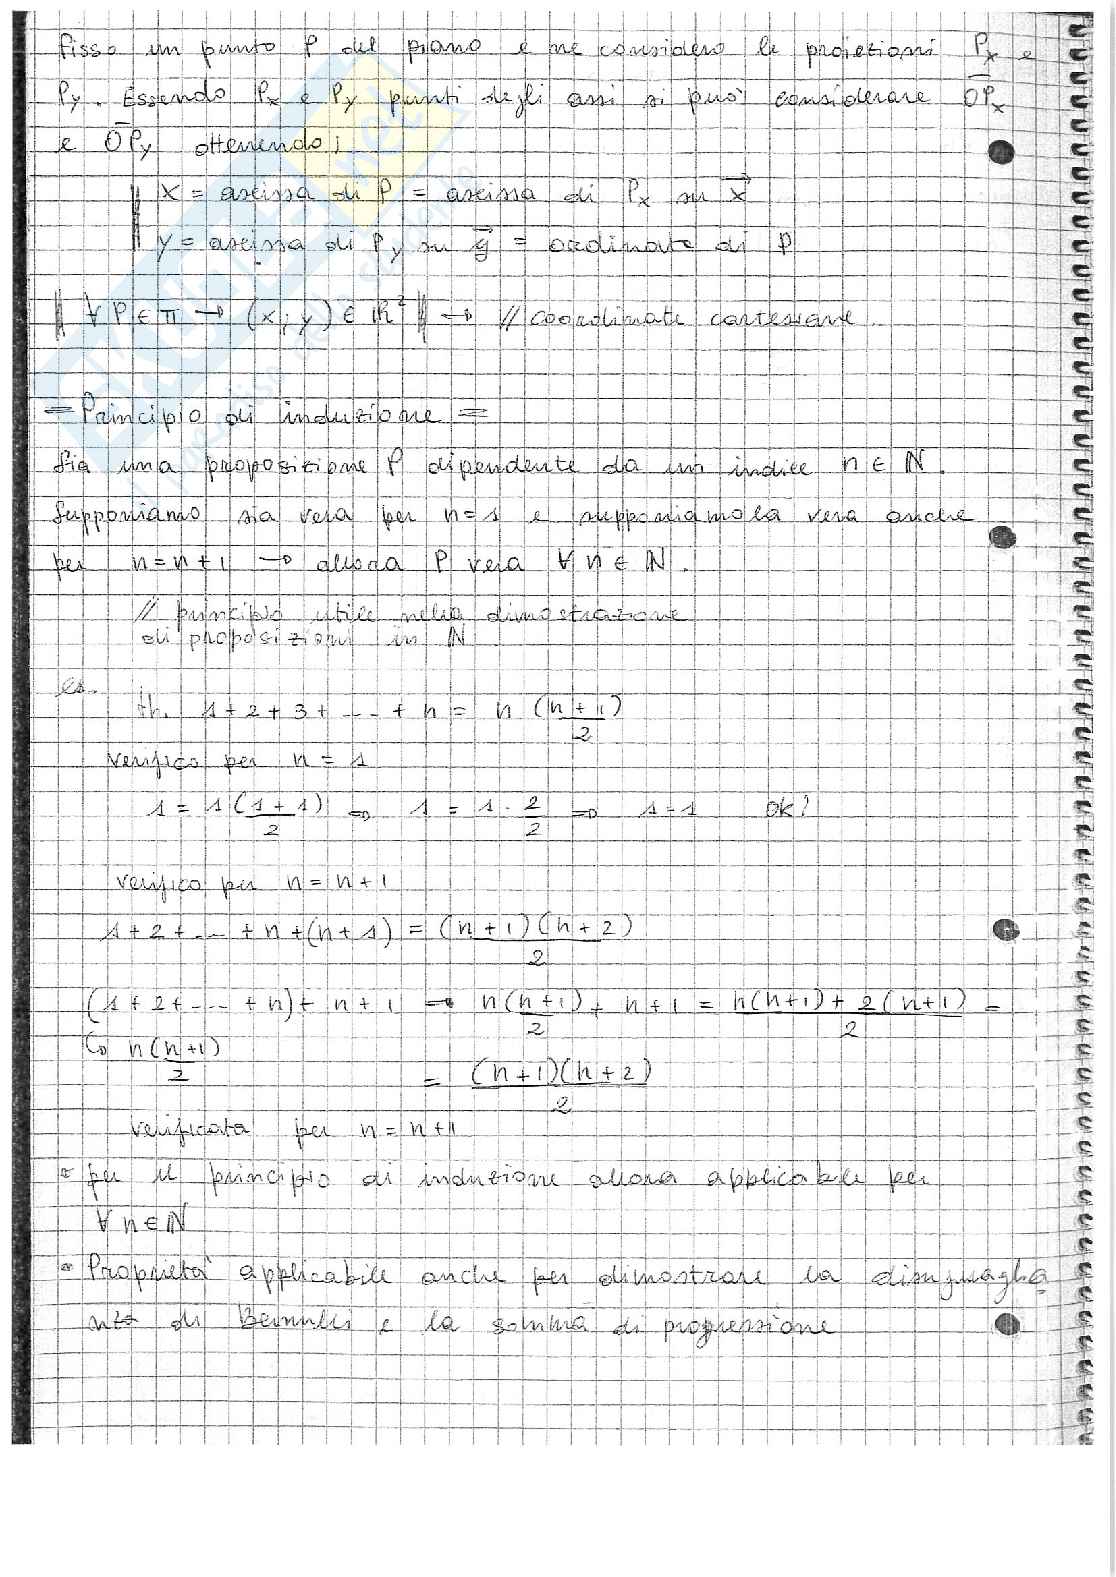 fisso un punto P del piano e ne considero le proiezioni Px e
Py. Essendo Px e Py punti degli assi si può considerare OPx
e OPy ottenendo;
x = ascissa di P = ascissa di Px su x
y = ascissa di Py su y = ordinata di P
∀ P ∈ π → (x; y) ∈ ℝ² → // coordinate cartesiane.
= Principio di induzione =
Sia una proposizione P dipendente da un indice n ∈ ℕ.
Supponiamo sia vera per n=1 e supponiamola vera anche
per n = n+1 → allora P vera ∀ n ∈ ℕ.
// principio utile nella dimostrazione
di proposizioni in ℕ
es.
th. 1+2+3+ --- + n = n (n+1)/2
verifico per n = 1
1 = 1(1+1)/2 ⇒ 1 = 1 · 2/2 ⇒ 1=1 ok!
verifico per n = n+1
1+2+ --- +n+(n+1) = (n+1)(n+2)/2
(1+2+ --- +n)+ n+1 → n(n+1)/2 + n+1 = n(n+1)+2(n+1)/2 =
↳ n(n+1)/2
= (n+1)(n+2)/2
verificata per n = n+1
per il principio di induzione allora applicabile per
∀ n ∈ ℕ
Proprietà applicabile anche per dimostrare la disuguaglia
nza di Bernulli e la somma di progressione